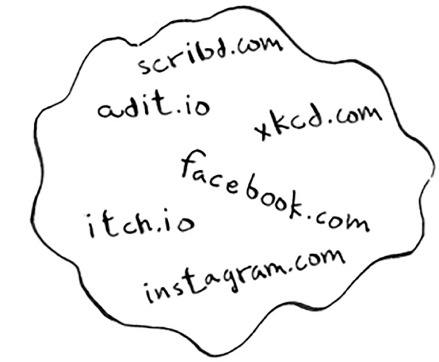 scribd.com
adit.io
xkcd.com
facebook.com
itch.io
instagram.com